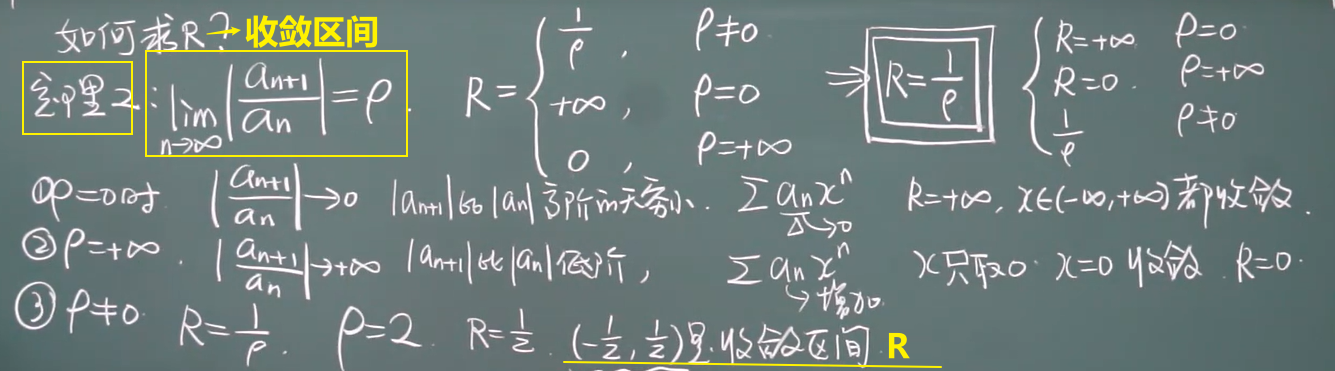 如何求R？→收敛区间
定理2： lim n→∞ |aₙ₊₁/aₙ| = ρ. R = { 1/ρ, ρ≠0 ; +∞, ρ=0 ; 0, ρ=+∞ ⇒ R=1/ρ { R=+∞ ρ=0 ; R=0. ρ=+∞ ; 1/ρ ρ≠0
①ρ=0时 |aₙ₊₁/aₙ|→0 |aₙ₊₁|比|aₙ|高阶的无穷小. Σaₙxⁿ →0 R=+∞, x∈(-∞,+∞)都收敛.
②ρ=+∞. |aₙ₊₁/aₙ|→+∞ |aₙ₊₁|比|aₙ|低阶, Σaₙxⁿ →增加. x只取0. x=0收敛. R=0.
③ρ≠0. R=1/ρ. ρ=2. R=1/2. (-1/2, 1/2)是收敛区间. R